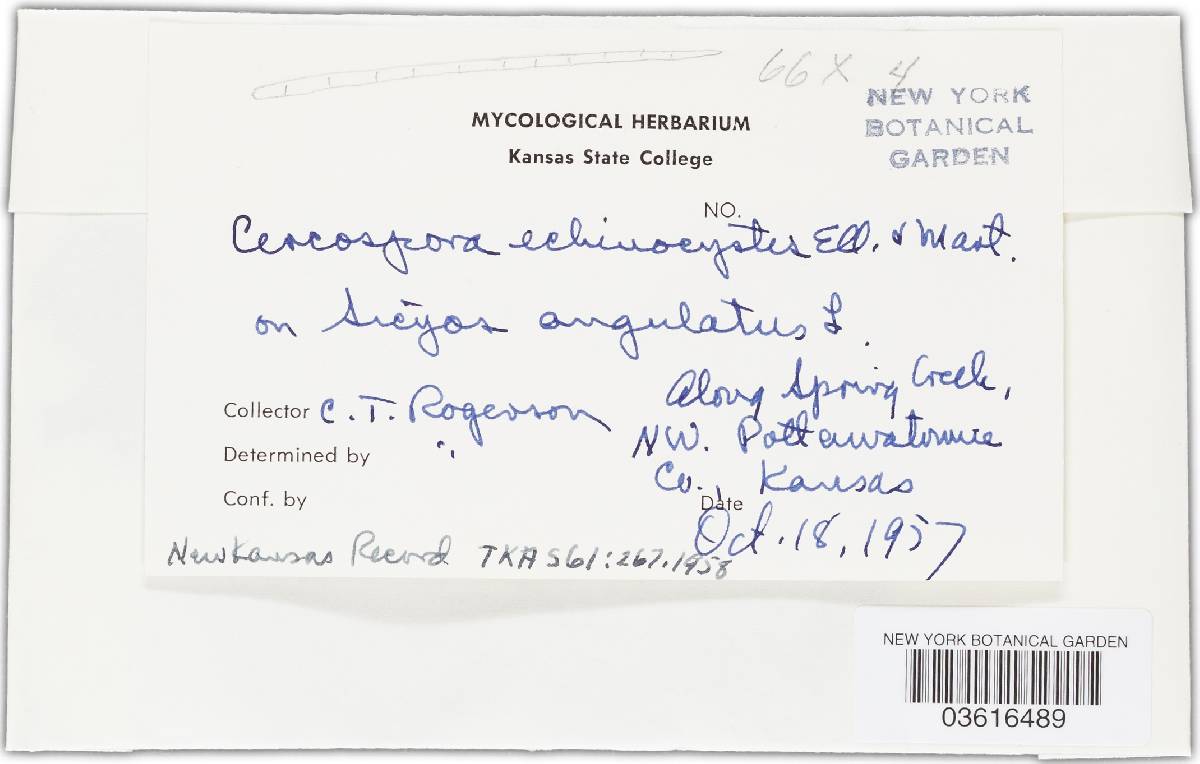 66 X 4
NEW YORK
BOTANICAL
GARDEN
MYCOLOGICAL HERBARIUM
Kansas State College
NO.
Cercospora echinocystis Ell. & Mart.
on Sicyos angulatus L.
Along Spring Creek,
Collector C. T. Rogerson
NW. Pottawatomie
Determined by "
Co., Kansas
Conf. by
Date
Oct. 18, 1957
New Kansas Record TKAS 61:267.1958
NEW YORK BOTANICAL GARDEN
03616489